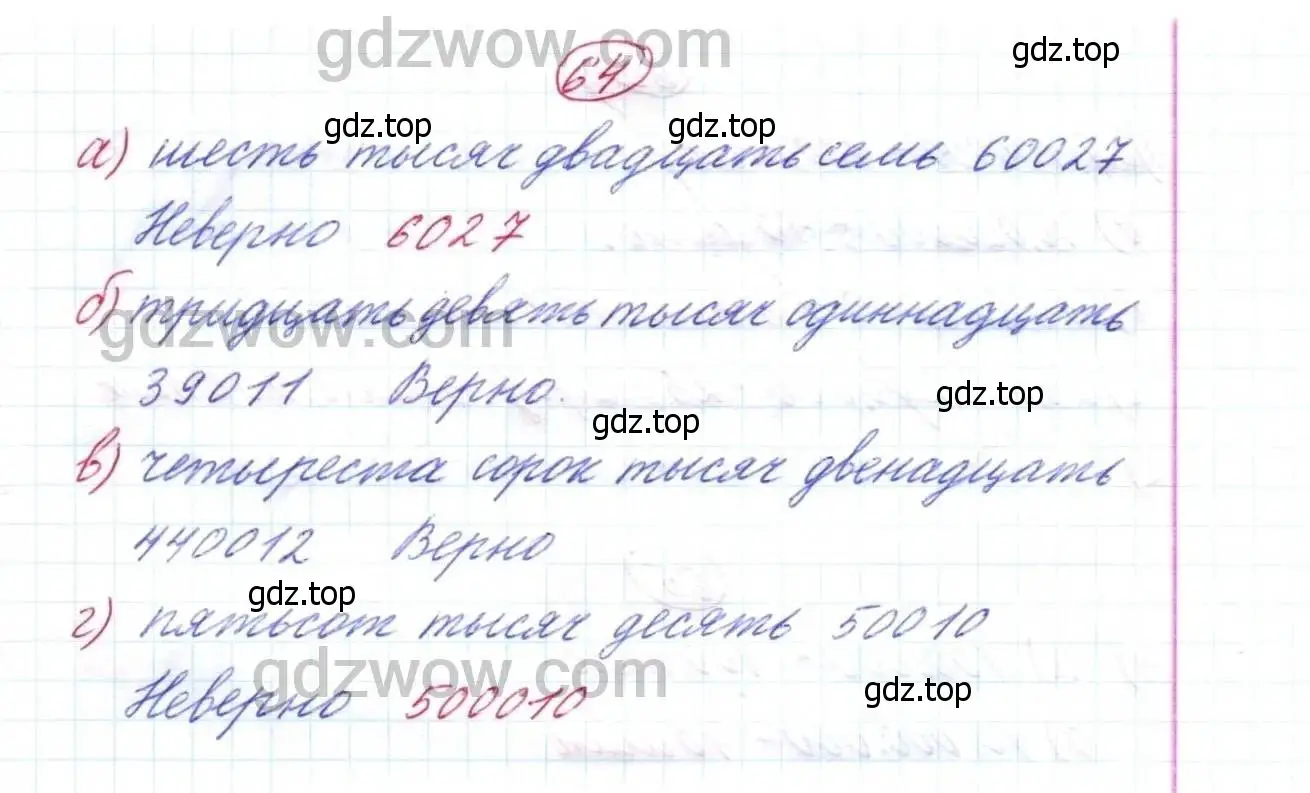 gdzwow.com
64
gdz.top
gdz.top gdz.top
а) шесть тысяч двадцать семь 60027
Неверно 6027
б) тридцать девять тысяч одиннадцать
gdzwow.com
39011 Верно.
gdz.top
gdz.top
в) четыреста сорок тысяч двенадцать
440012 Верно
gdz.top
г) пятьсот тысяч десять 50010
gdzwow.com
gdz.top
Неверно 500010